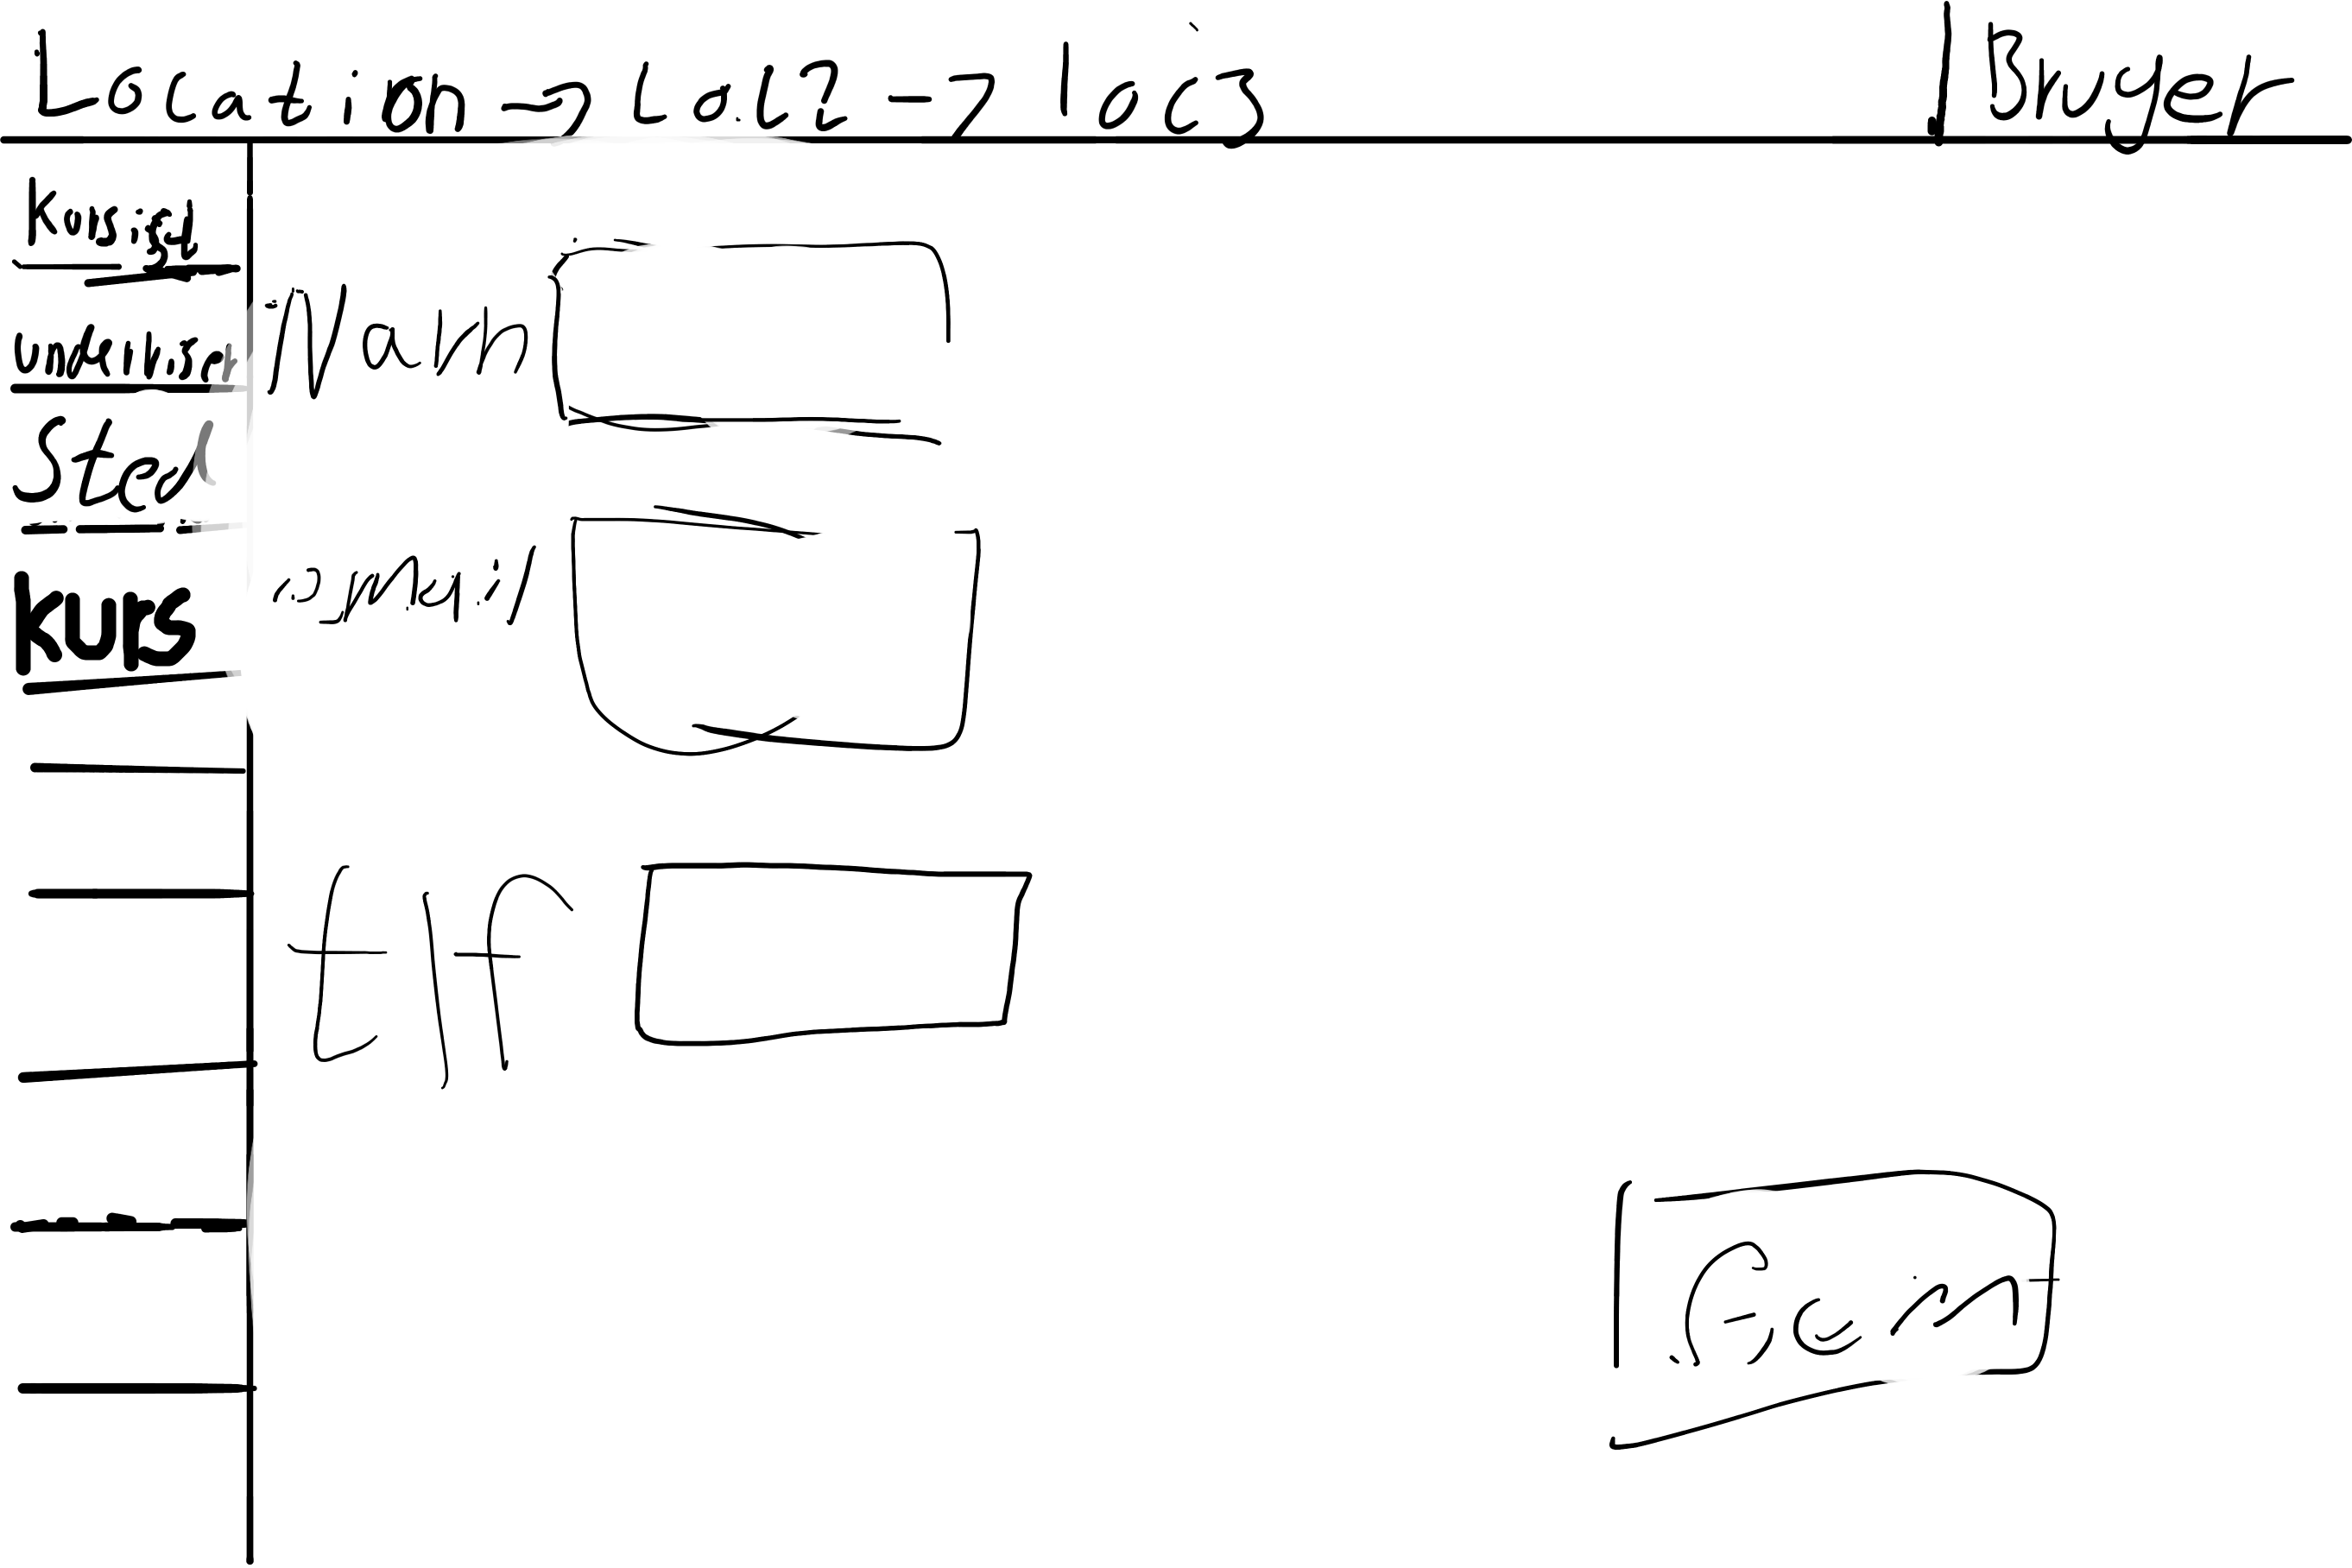 Location -> Loc2 -> loc3
Bruger
Kursist
underviser
Sted
kurs
Navn
tlf